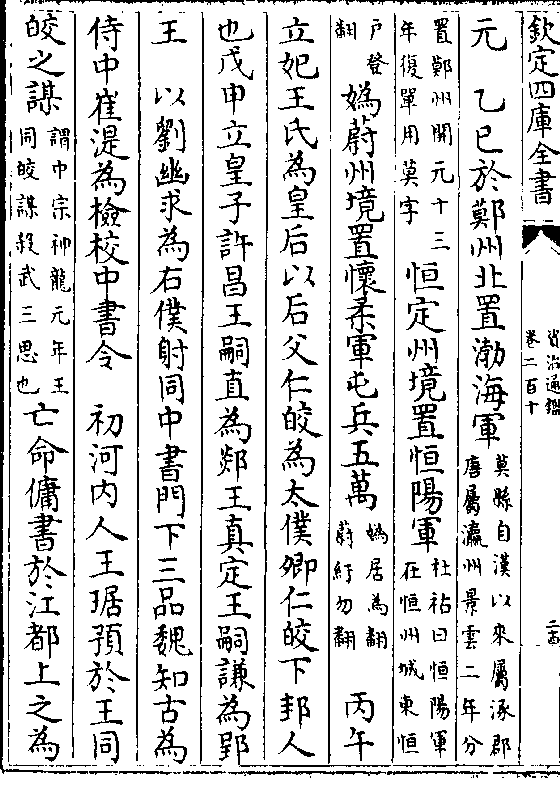 欽定四庫全書
資治通鑑
卷二百十
元　乙巳於鄭州北置渤海軍莫縣自漢以來屬涿郡唐屬瀛州景雲二年分
置鄭州開元十三年復單用莫字恒定州境置恒陽軍杜祐曰恒陽軍在恒州城東恒
戶登翻媯蔚州境置懷柔軍屯兵五萬媯居為翻蔚紆勿翻　丙午
立妃王氏為皇后以后父仁皎為太僕卿仁皎下邽人
也戊申立皇子許昌王嗣直為郯王真定王嗣謙為郢
王　以劉幽求為右僕射同中書門下三品魏知古為
侍中崔湜為檢校中書令　初河内人王琚預於王同
皎之謀謂中宗神龍元年王同皎謀殺武三思也亡命傭書於江都上之為